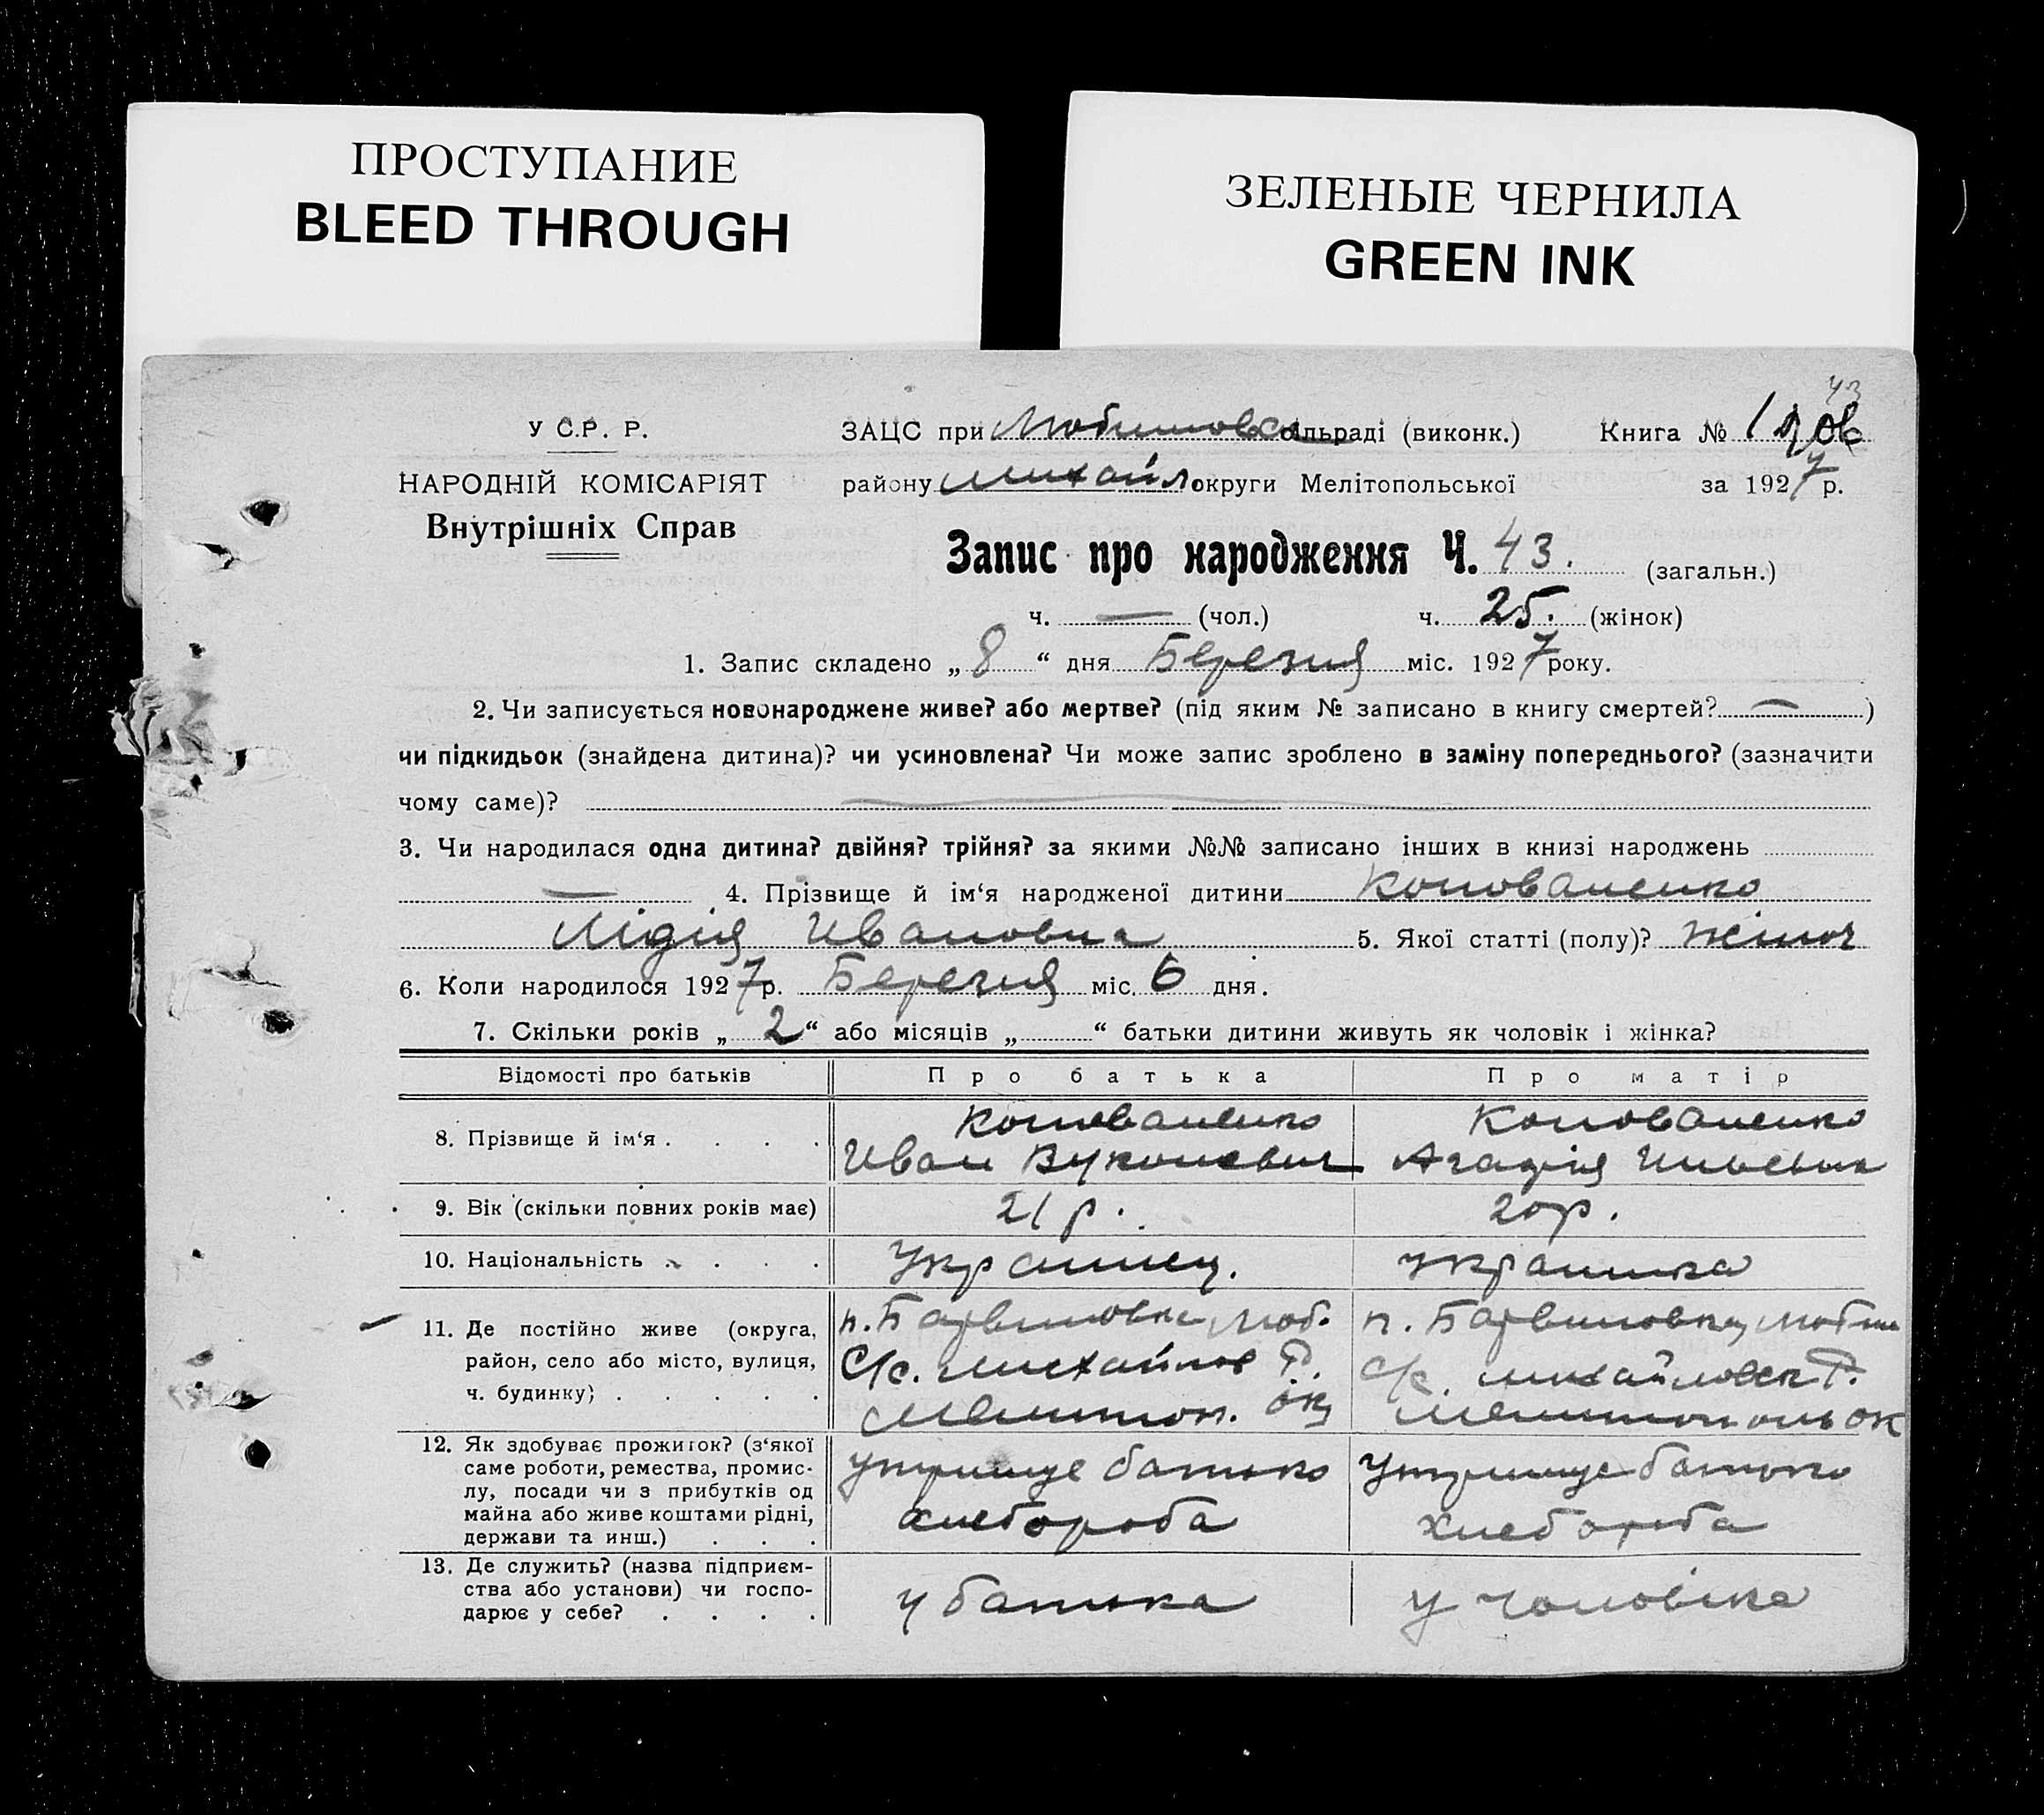 ПРОСТУПАНИЕ
BLEED THROUGH
ЗЕЛЕНЫЕ ЧЕРНИЛА
GREEN INK
43
У С.Р. Р.
НАРОДНІЙ КОМІСАРІЯТ
Внутрішніх Справ
ЗАЦС при Любимовск сільраді (виконк.) Книга № 1
району Михайл округи Мелітопольської за 1927 р.
Запис про народження Ч. 43. (загальн.)
ч. — (чол.) ч. 25. (жінок)
1. Запис складено „ 8 “ дня Березня міс. 1927 року.
2. Чи записується новонароджене живе? або мертве? (під яким № записано в книгу смертей? — )
чи підкидьок (знайдена дитина)? чи усиновлена? Чи може запис зроблено в заміну попереднього? (зазначити
чому саме)?
3. Чи народилася одна дитина? двійня? трійня? за якими №№ записано інших в книзі народжень
— 4. Прізвище й ім‘я народженої дитини Коноваленко
Лідія Ивановна 5. Якої статті (полу)? жіноч
6. Коли народилося 1927 р. Березня міс. 6 дня.
7. Скільки років „ 2 “ або місяців „ “ батьки дитини живуть як чоловік і жінка?
Відомості про батьків Про батька Про матір
8. Прізвище й ім‘я . . . .
Коноваленко
Иван Вуколович
Коноваленко
Агафія
9. Вік (скільки повних років має) 21 р. 20 р.
10. Національність . . . . Украинец. украинка
11. Де постійно живе (округа,
район, село або місто, вулиця,
ч. будинку) . . . . .
п. Барвиновка Люб.
С/с. Михайлов Р.
Мелитоп. ок
п. Барвиновка Любим
С/с. Михайловск Р.
Мелитополь ок
12. Як здобуває прожиток? (з‘якої
саме роботи, ремества, промис-
лу, посади чи з прибутків од
майна або живе коштами рідні,
держави та инш.) . . .
утримує батько
хлебороба
утримує батько
хлебороба
13. Де служить? (назва підприєм-
ства або установи) чи госпо-
дарює у себе? . . . .
у батька
у чоловіка